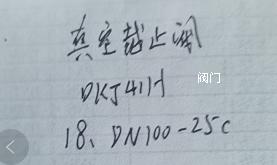 真空截止阀
阀门
DKJ41H
18、DN100-25C